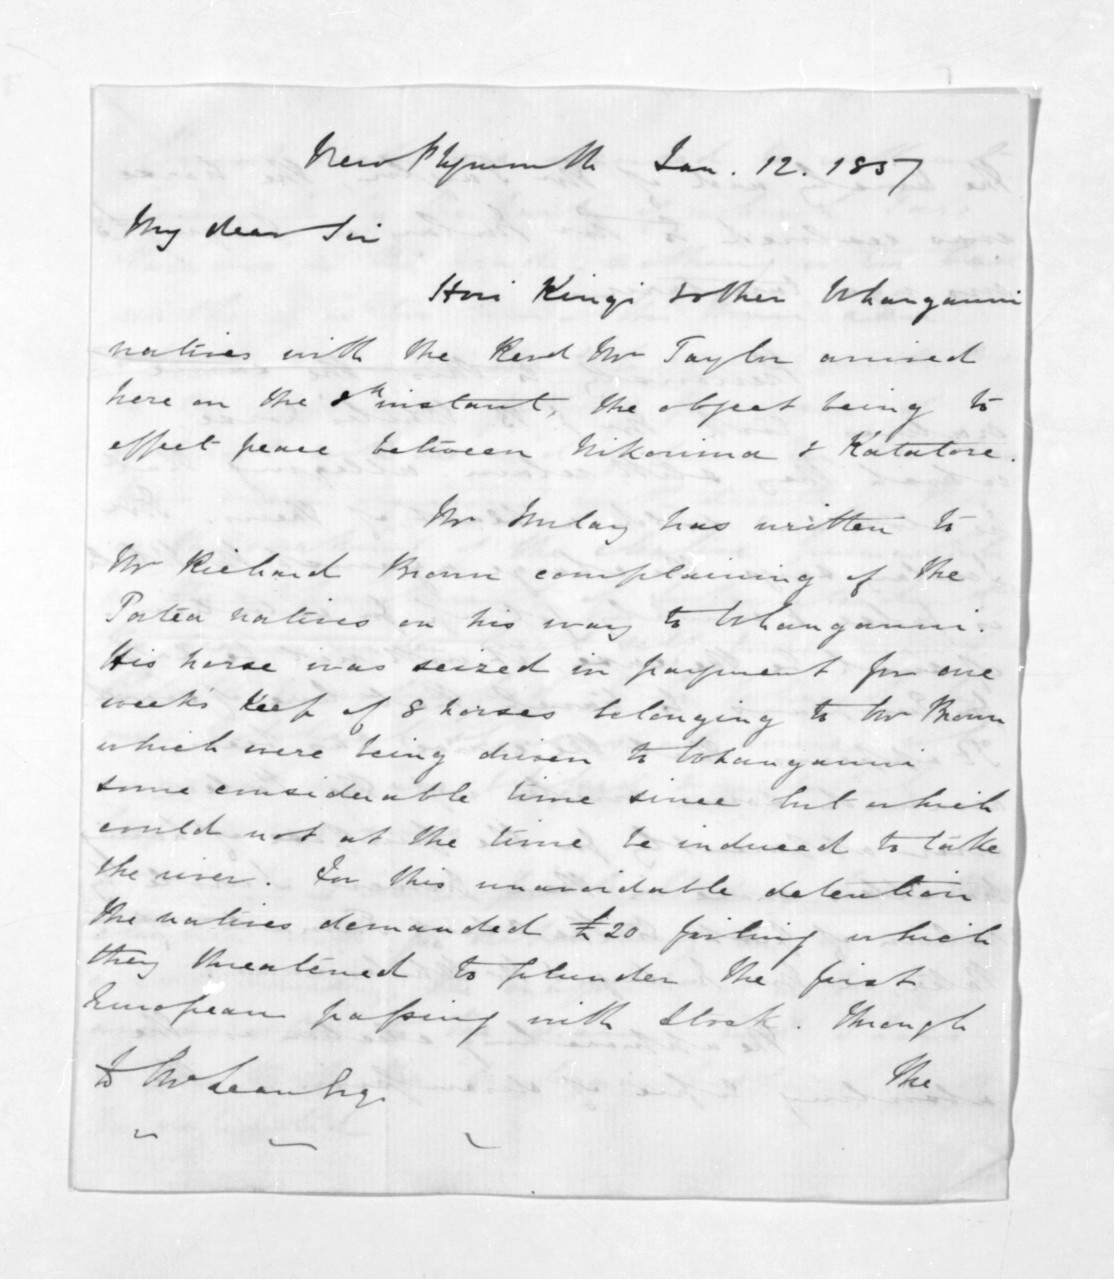 New Plymouth Jan. 12. 1857
My dear Sir
Hori Kingi & other Whanganui
natives with the Revd Mr Taylor arrived
here on the 8th instant, the object being to
effect peace between Nikorima & Katatore.
Mr Imlay has written to
Mr Richard Brown complaining of the
Patea natives on his way to Whanganui.
His horse was seized in payment for one
weeks keep of 8 horses belonging to Mr Brown
which were being driven to Whanganui
some considerable time since but which
could not at the time be induced to take
the river. For this unavoidable detention
the natives demanded £20 failing which
they threatened to plunder the first
European passing with stock. Through
D McLean Esqr
the